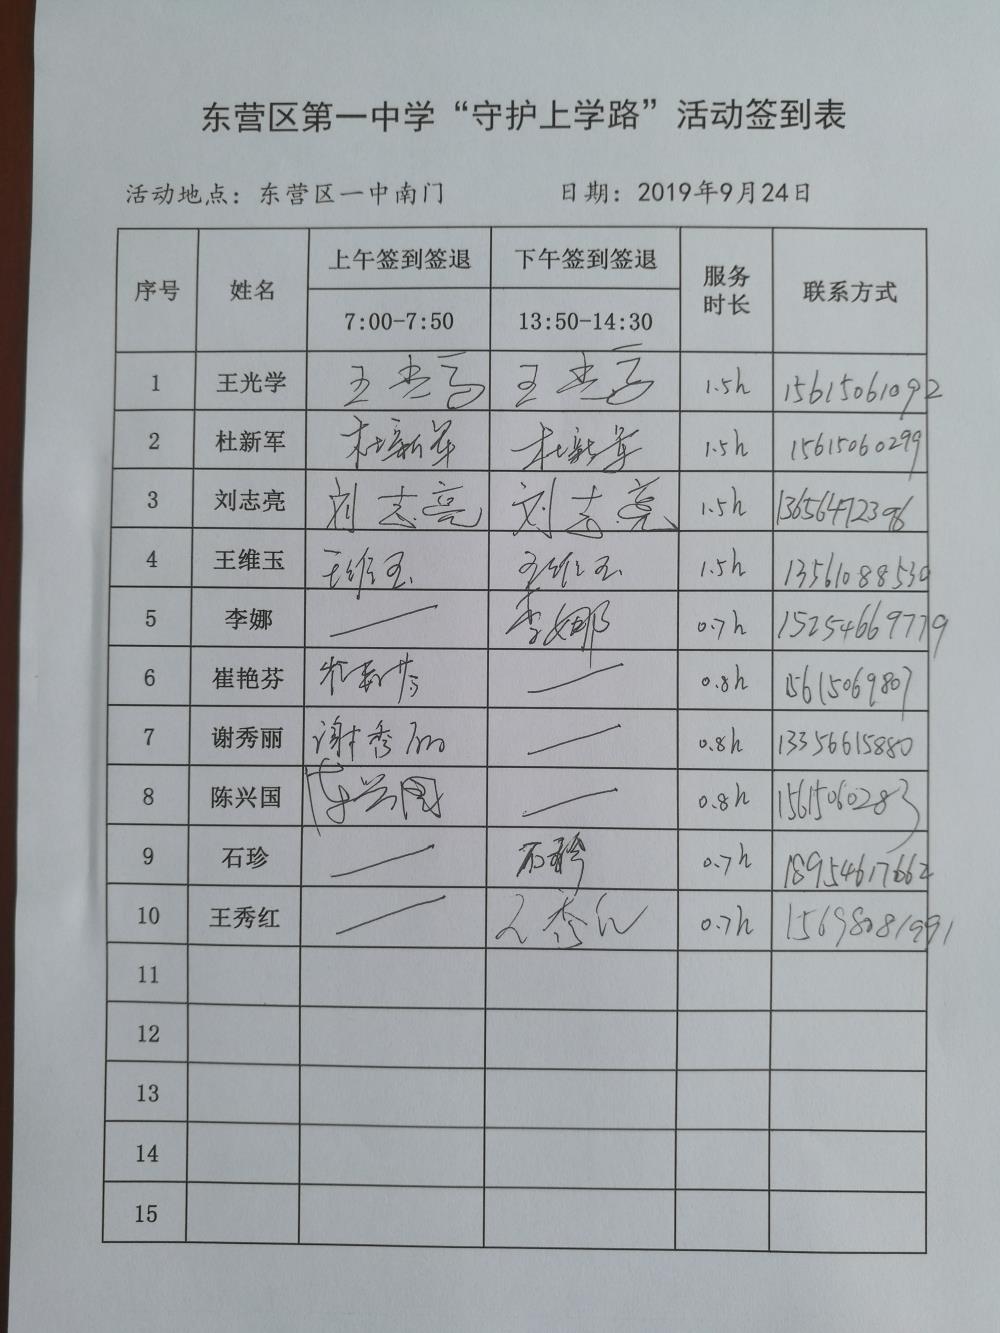 东营区第一中学“守护上学路”活动签到表
活动地点：东营区一中南门 日期：2019年9月24日
序号 姓名 上午签到签退 下午签到签退 服务时长 联系方式
7:00-7:50 13:50-14:30
1 王光学 王光学 王光学 1.5h 15615061092
2 杜新军 杜新军 杜新军 1.5h 15615060299
3 刘志亮 刘志亮 刘志亮 1.5h 13656472396
4 王维玉 王维玉 王维玉 1.5h 13561088530
5 李娜 — 李娜 0.7h 15254669779
6 崔艳芬 崔艳芬 — 0.8h 15615069807
7 谢秀丽 谢秀丽 — 0.8h 13356615880
8 陈兴国 陈兴国 — 0.8h 15615060283
9 石珍 — 石珍 0.7h 18954617662
10 王秀红 — 王秀红 0.7h 15698081991
11
12
13
14
15